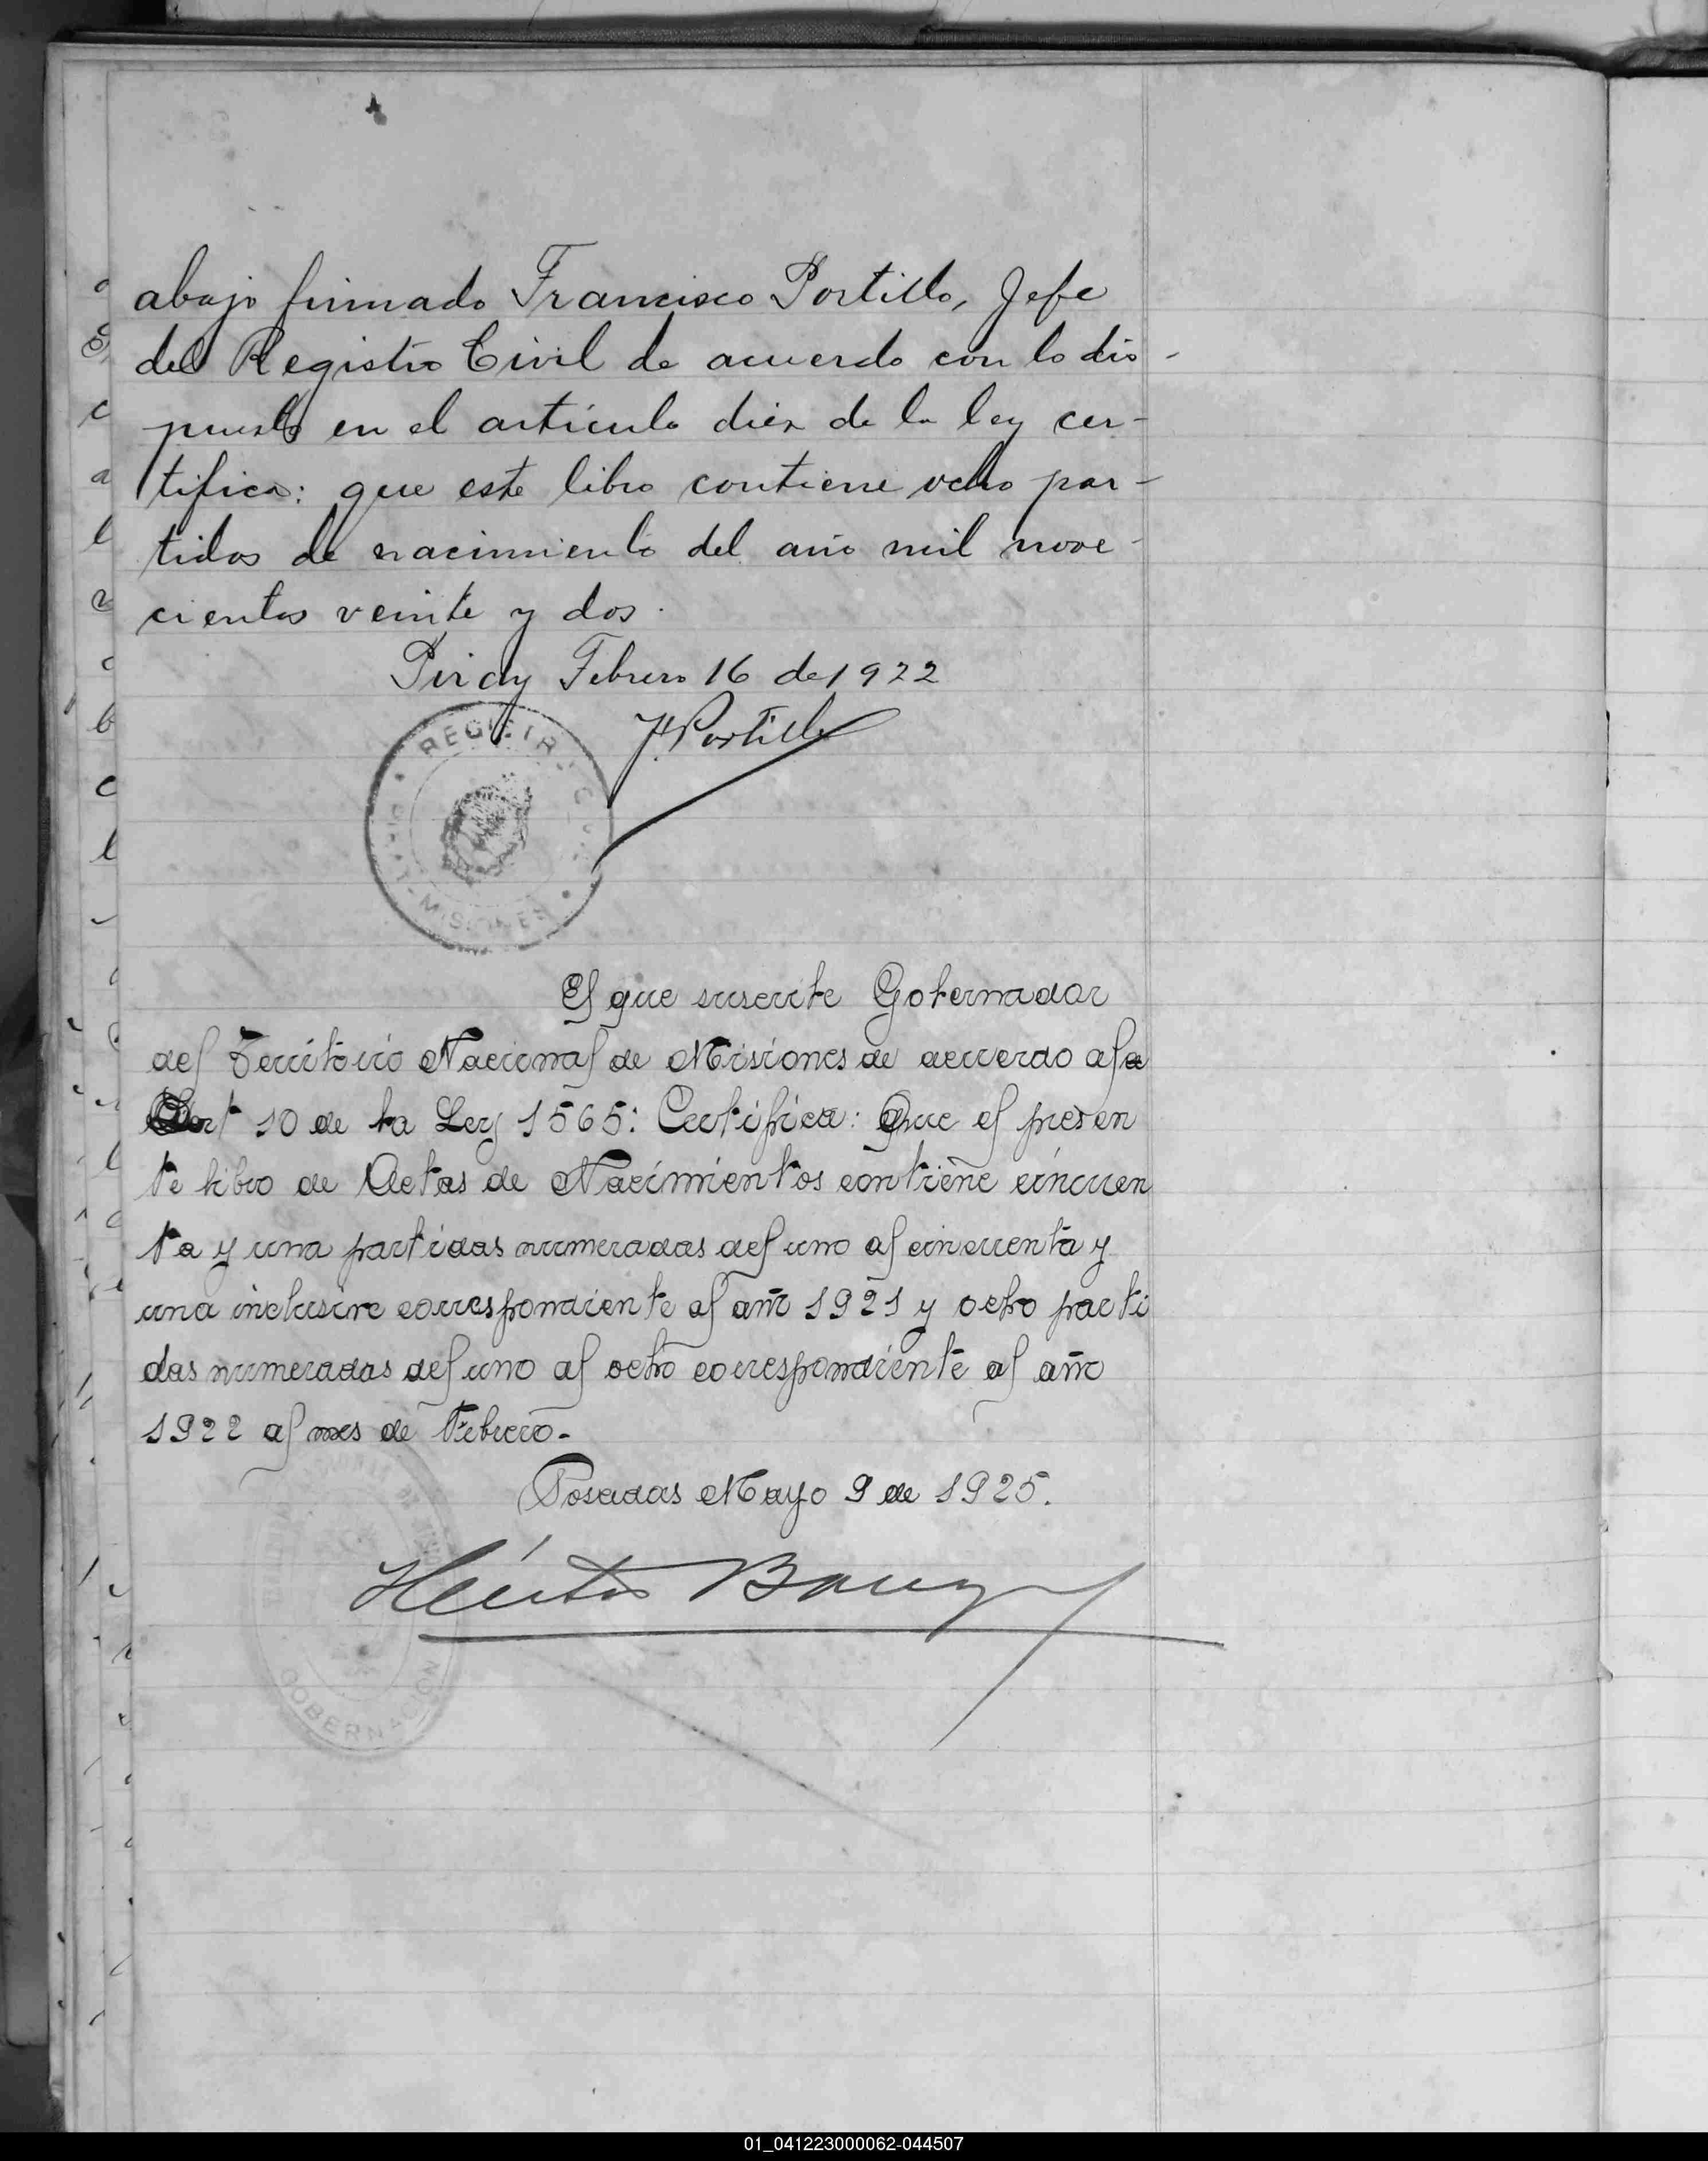 abajo firmado Francisco Portillo, Jefe
del Registro Civil de acuerdo con lo dis-
puesto en el artículo diez de la ley cer-
tifica: que este libro contiene ocho par-
tidas de nacimiento del año mil nove-
cientos veinte y dos.
Piray Febrero 16 de 1922
F. Portillo
REGISTRO CIVIL
PIRAY - MISIONES
El que suscrite Gobernador
del Territorio Nacional de Misiones de acuerdo al a
Art 10 de la Ley 1565: Certifica: Que el presen
te libro de Actas de Nacimientos contiene cincuen
ta y una partidas numeradas del uno al cincuenta y
una inclusive correspondiente al año 1921 y ocho parti
das numeradas del uno al ocho correspondiente al año
1922 al mes de Febrero.-
Posadas Mayo 9 de 1925.
Héctor Barreyro
GOBERNACION
01_041223000062-044507